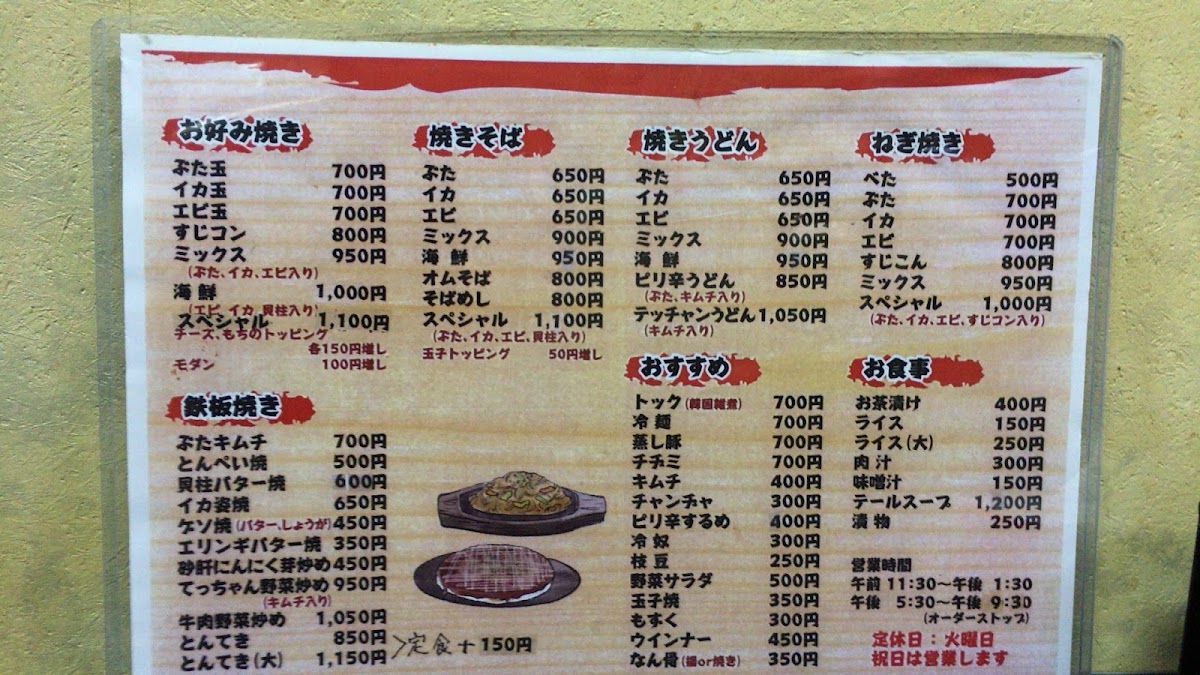 お好み焼き
ぶた玉 700円
イカ玉 700円
エビ玉 700円
すじコン 800円
ミックス 950円
(ぶた、イカ、エビ入り)
海鮮 1,000円
(エビ、イカ、貝柱入り)
スペシャル 1,100円
チーズ、もちのトッピング
各150円増し
モダン 100円増し
焼きそば
ぶた 650円
イカ 650円
エビ 650円
ミックス 900円
海鮮 950円
オムそば 800円
そばめし 800円
スペシャル 1,100円
(ぶた、イカ、エビ、貝柱入り)
玉子トッピング 50円増し
焼きうどん
ぶた 650円
イカ 650円
エビ 650円
ミックス 900円
海鮮 950円
ピリ辛うどん 850円
(ぶた、キムチ入り)
テッチャンうどん 1,050円
(キムチ入り)
ねぎ焼き
べた 500円
ぶた 700円
イカ 700円
エビ 700円
すじこん 800円
ミックス 950円
スペシャル 1,000円
(ぶた、イカ、エビ、すじコン入り)
鉄板焼き
ぶたキムチ 700円
とんぺい焼 500円
貝柱バター焼 600円
イカ姿焼 650円
ゲソ焼(バター、しょうが) 450円
エリンギバター焼 350円
砂肝にんにく芽炒め 450円
てっちゃん野菜炒め 950円
(キムチ入り)
牛肉野菜炒め 1,050円
とんてき 850円
とんてき(大) 1,150円
>定食+150円
おすすめ
トック(韓国雑煮) 700円
冷麺 700円
蒸し豚 700円
チヂミ 700円
キムチ 400円
チャンヂャ 300円
ピリ辛するめ 400円
冷奴 300円
枝豆 250円
野菜サラダ 500円
玉子焼 350円
もずく 300円
ウインナー 450円
なん骨(揚or焼き) 350円
お食事
お茶漬け 400円
ライス 150円
ライス(大) 250円
肉汁 300円
味噌汁 150円
テールスープ 1,200円
漬物 250円
営業時間
午前 11:30～午後 1:30
午後 5:30～午後 9:30
(オーダーストップ)
定休日:火曜日
祝日は営業します